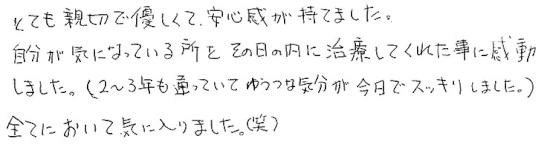 とても親切で優しくて、安心感が持てました。
自分が気になっている所をその日の内に治療してくれた事に感動
しました。(2〜3年も通っていてゆううつな気分が今日でスッキリしました。)
全てにおいて気に入りました。(笑)